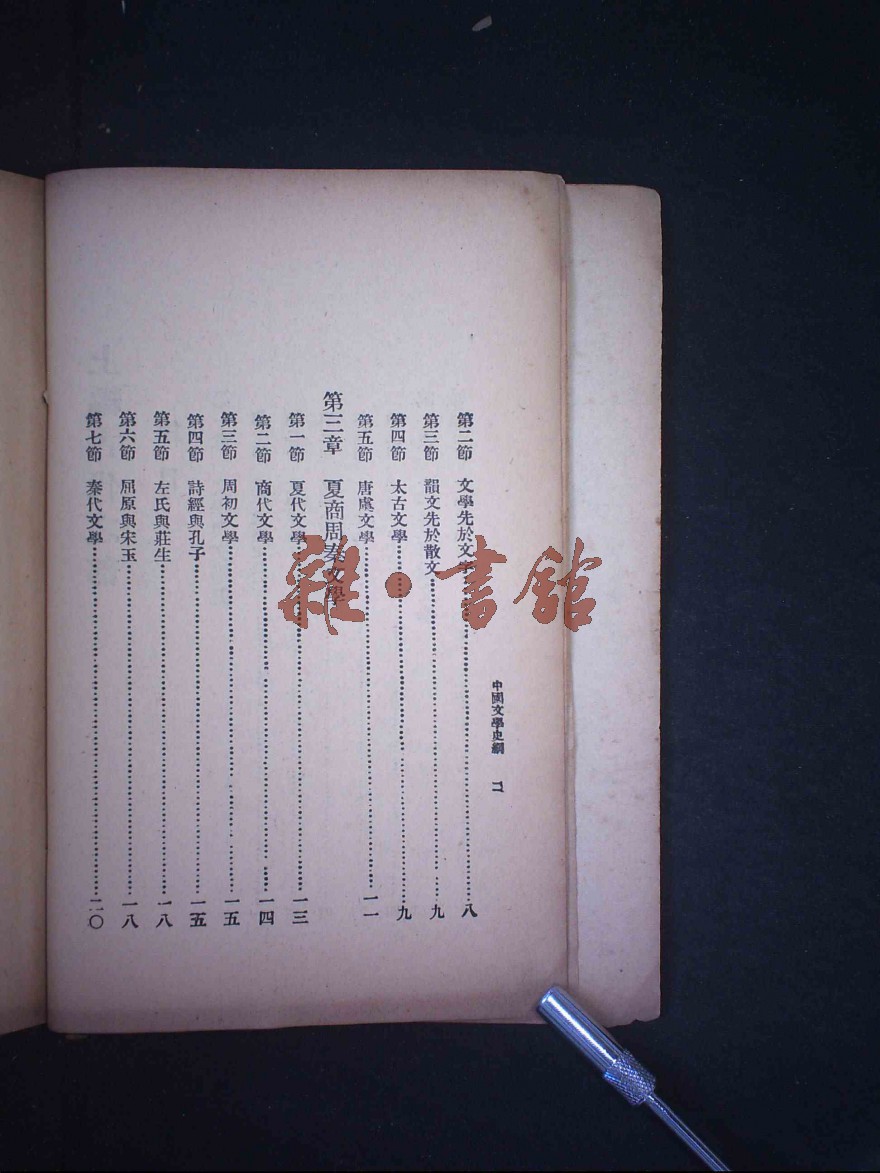 中國文學史綱 二
第二節 文學先於文字 八
第三節 韻文先於散文 九
第四節 太古文學 九
第五節 唐虞文學 一一
第三章 夏商周秦文學
第一節 夏代文學 一三
第二節 商代文學 一四
第三節 周初文學 一五
第四節 詩經與孔子 一五
第五節 左氏與莊生 一八
第六節 屈原與宋玉 一八
第七節 秦代文學 二〇
雜·書館